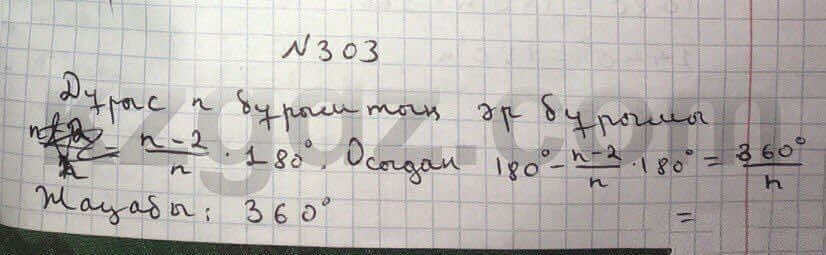 N 303
Дұрыс n бұрыштың әр бұрышы
= n-2/n · 180°. Осыдан 180° - n-2/n · 180° = 360°/n
Жауабы: 360° =